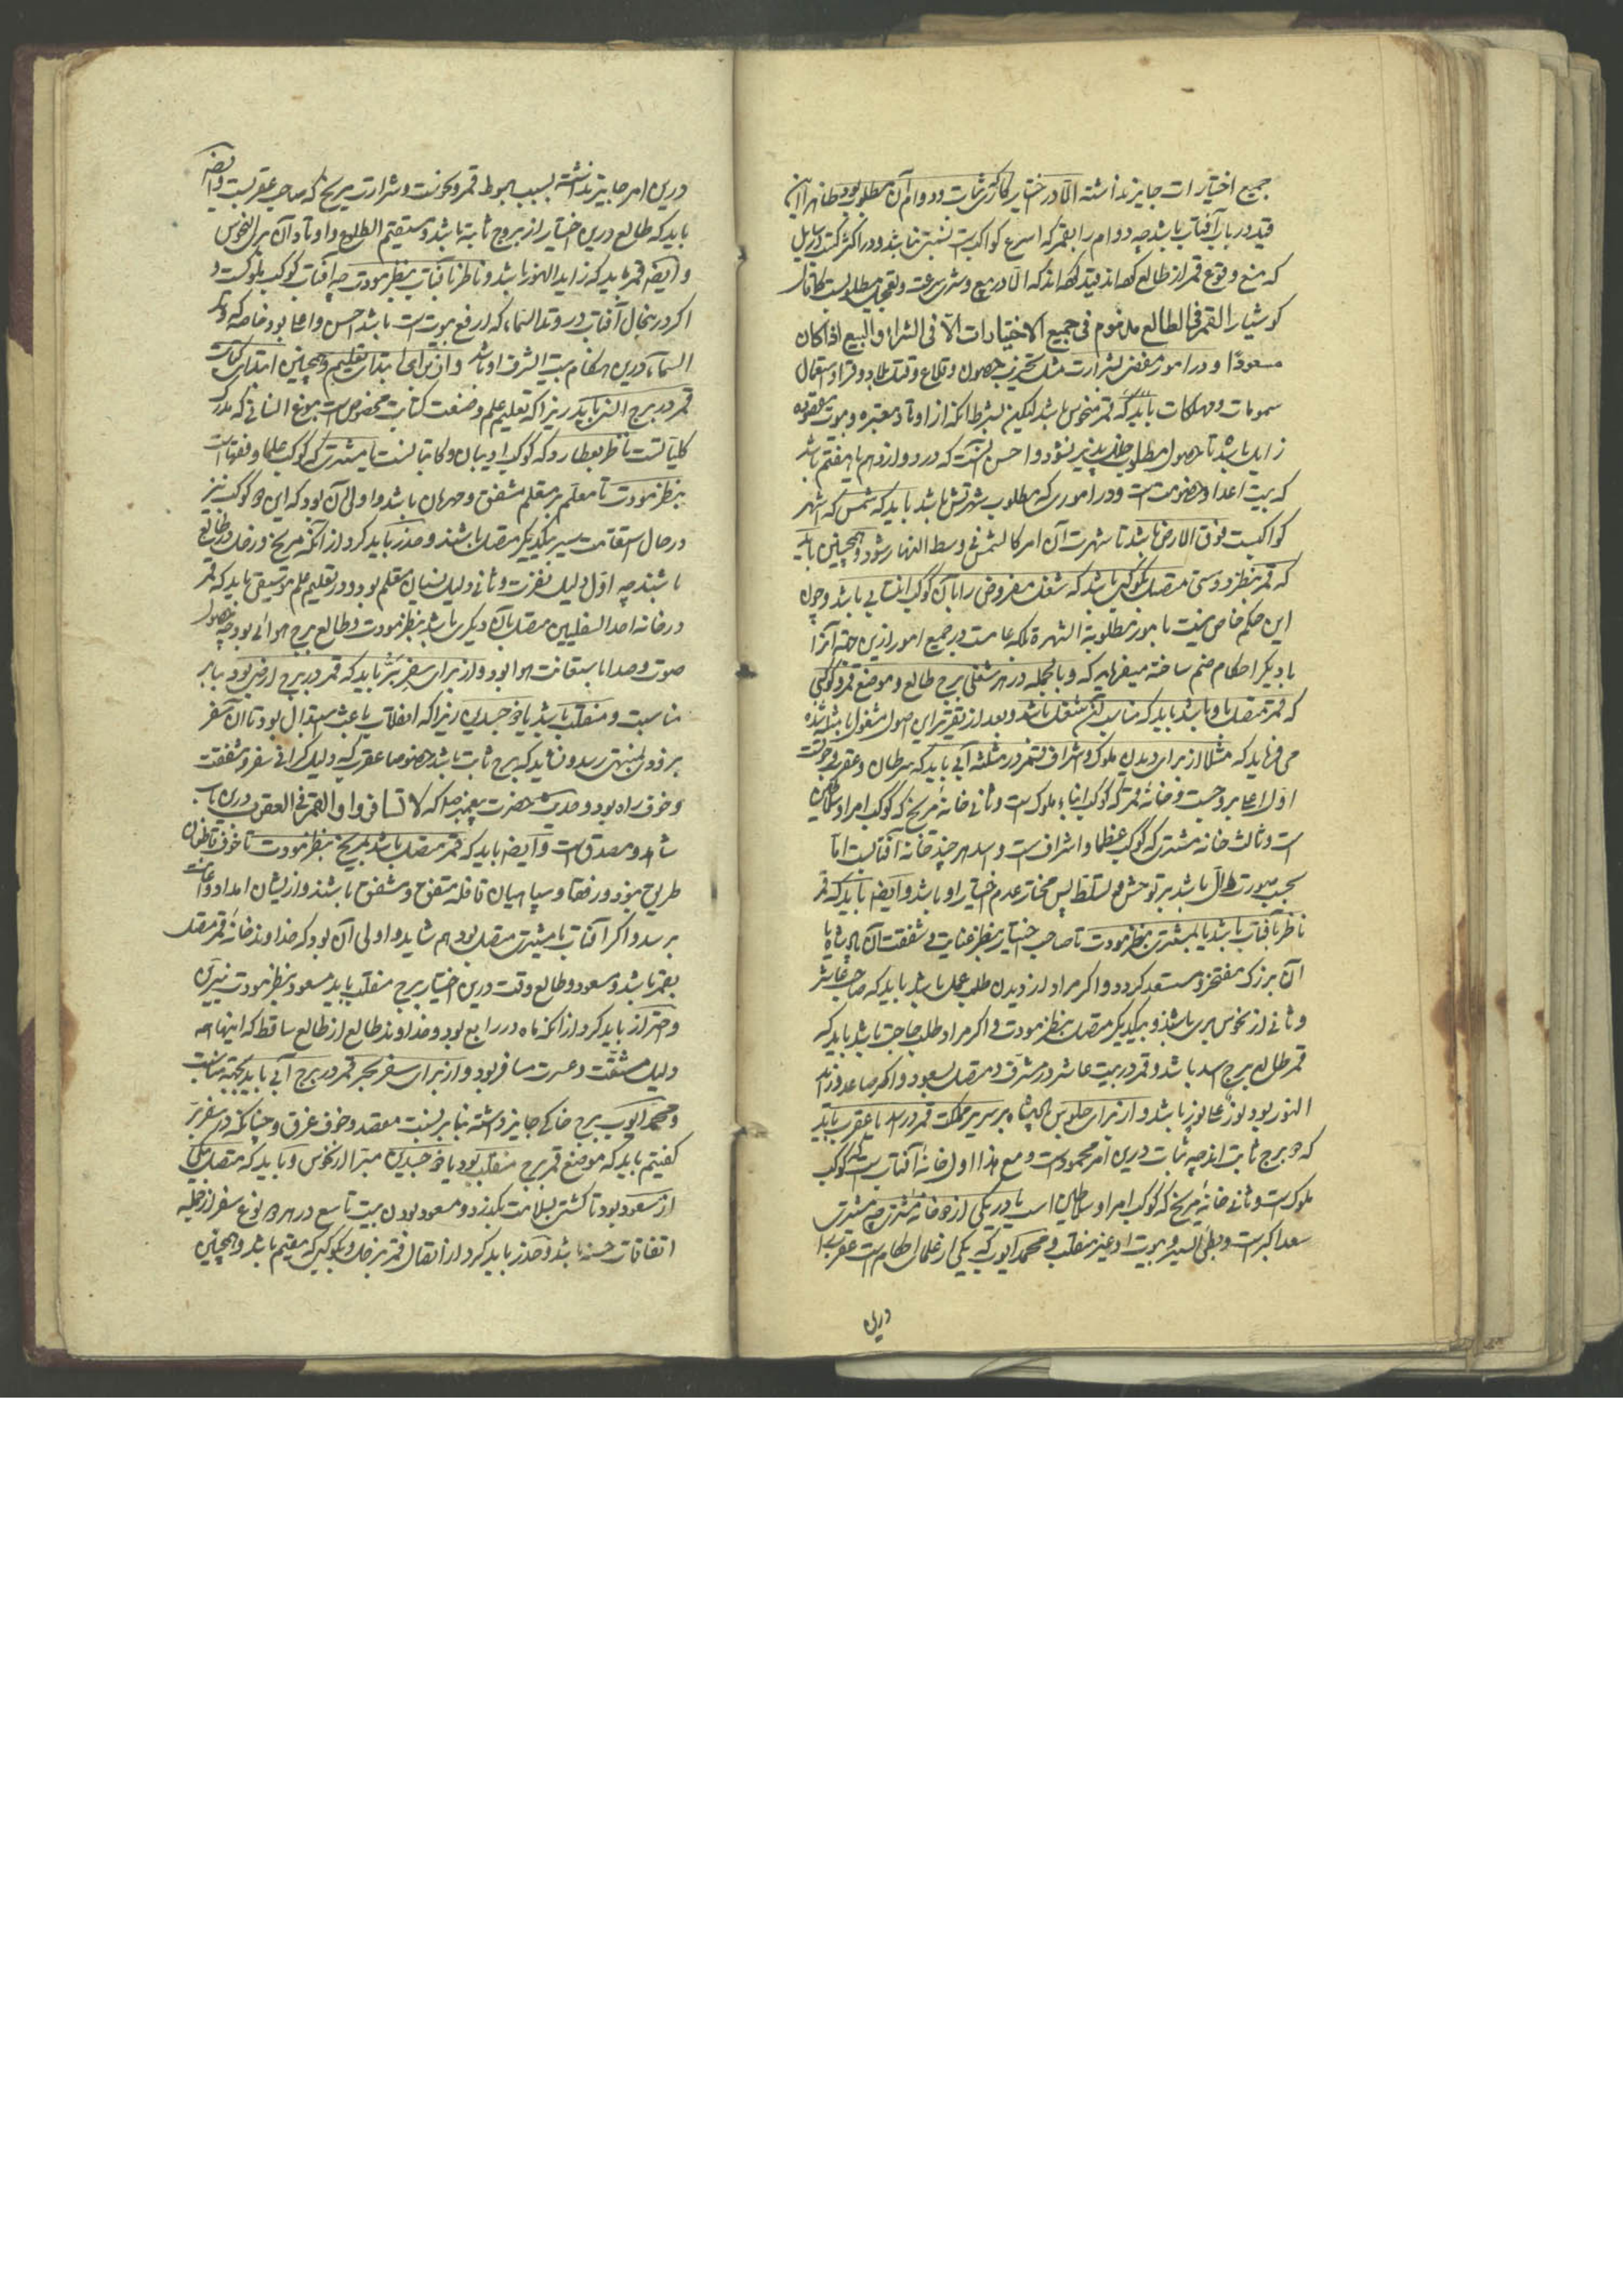 جمیع اختیارات جایز نداشته الا در اختیار کاری که ثبات و دوام آن مطلوب بود ظاهرا این
قید در باب آفتاب باشد چه دوام را بقمر که اسرع کواکب است نسبتی نباشد و در اکثر کتب و رسایل
که منع وقوع قمر از طالع کرده‌اند قید کرده‌اند که الا در بیع و شری سرعت و تعجیل مطلوب است کما قال
کوشیار القمر فی الطالع مذموم فی جمیع الاختیارات الا فی الشراء و البیع اذا کان
مسعودا و در امور مفضی بشرارت مثل تخریب حصون و قلاع و قتال و استعمال
سمومات و مهلکات باید که قمر منحوس باشد لیکن بشرط آنکه از اوتاد معتبره و بیوت مقصوده
زایل باشد تا حصول مطلوب خلل پذیر نشود و احسن آنست که در دوازدهم یا هفتم باشد
که بیت اعدا و خصومت است و در اموری که مطلوب شهرتش باشد باید که شمس که اشهر
کواکبست فوق الارض باشد تا شهرت آن امر کالشمس فی وسط النهار شود و همچنین باید
که قمر بنظر دوستی متصل بکوکبی باشد که شغل مفروض را با آن کوکب انتسابی باشد و چون
این حکم خاص نیست بامور مطلوبة الشهرة بلکه عامست در جمیع امور ازین جهة آنرا
با دیگر احکام ضم ساخته میفرماید که و بالجمله در هر شغلی برج طالع و موضع قمر و کوکبی
که قمر متصل باو باشد باید که مناسب آن شغل باشد و بعد از تقریر این اصول مشغول بامثله شده
می فرماید که مثلا از برای دیدن ملوک و اشراف قمر در مثلثه آبی باید که سرطان و عقرب و حوتست
اول اعلی بروجست و خانه قمر که کوکب ابناء ملوک است و ثانی خانه مریخ که کوکب امراء و سلاطین
است و ثالث خانه مشتری که کوکب عظما و اشراف است و اسد هر چند خانه آفتابست اما
بحسب صورت دال باشد بر توحش و تسلط پس مختار عدم اختیار او باشد و ایضا باید که قمر
ناظر بآفتاب باشد یا بمشتری بنظر مودت تا صاحب اختیار بنظر عنایت و شفقت آن پادشاه یا
آن بزرک مفتخر و مستعد کردد و اکر مراد از دیدن طلب عمل باشد باید که صاحب عاشر
و ثانی از نحوس بری باشند و بیکدیگر متصل بنظر مودت و اکر مراد طلب حاجت باشد باید که
قمر طالع برج اسد باشد و قمر در بیت عاشر در شرف و متصل بسعود و اکر صاعد و زاید
النور بود نور علی نور باشد و از برای جلوس پادشاه بر سریر مملکت قمر در اسد یا عقرب باید
که دو برج ثابت اند چه ثبات درین امر محمودست و مع هذا اول خانه آفتاب است که کوکب
ملوک است و ثانی خانه مریخ که کوکب امراء و سلاطین است یا در یکی از دو خانه مشتری چه مشتری
سعد اکبرست و بطئ السیر و بیوت او غیر منقلب و محمد ایوب که یکی از علماء احکام است عقرب را
درین
درین امر جایز نداشته بسبب هبوط قمر و نحوست و شرارت مریخ که صاحب عقربست و ایضا
باید که طالع درین اختیار از بروج ثابته باشد و مستقیم الطلوع و اوتاد آن بری از نحوس
و ایضا قمر باید که زاید النور باشد و ناظر بآفتاب بنظر مودت چه آفتاب کوکب ملوک است و
اکر در ینحال آفتاب در وتد السماء که ارفع بیوت است باشد احسن و اعلی بود خاصه که وتد
السماء درین هنکام بیت الشرف او باشد و از برای ابتدای تعلیم و همچنین ابتدای کتابت
قمر در برج انسی باید زیرا که تعلیم علم و صنعت کتابت مخصوص است بنوع انسانی که مدرک
کلیاتست ناظر بعطارد که کوکب ادیبان و کاتبانست یا بمشتری که کوکب علما و فقهاست
بنظر مودت تا معلم بر متعلم مشفق و مهربان باشد و اولی آن بود که این دو کوکب نیز
در حال استقامت سیر بیکدیگر متصل باشند و حذر باید کرد از آنکه مریخ و زحل در طالع
باشند چه اول دلیل نفرت و ثانی دلیل نسیان متعلم بود و در تعلیم علم موسیقی باید که قمر
در خانه احد السفلیین متصل بآن دیگری باشد بنظر مودت و طالع برج هوائی بود چه حصول
صوت و صدا باستعانت هوا بود و از برای سفر برّ باید که قمر در برج ارضی بود بنابر
مناسبت و منقلب باشد یا ذو جسدین زیرا که انقلاب باعث استبدال بود تا آن سفر
بزودی بمنتهی رسد و نشاید که برج ثابت باشد خصوصا عقرب که دلیل گرانی سفر و مشقت
و خوف راه بود و حدیث حضرت پیغمبر صلعم که لا تسافروا و القمر فی العقرب درین باب
شاهد و مصدق است و ایضا باید که قمر متصل باشد بمریخ بنظر مودت تا خوف قاطعان
طریق نبود و رفقا و سپاهیان قافله متفق و مشفق باشند و از ایشان امداد و اعانت
برسد و اکر آفتاب یا مشتری متصل بود هم شاید و اولی آن بود که خداوند خانه قمر متصل
بقمر باشد و مسعود و طالع وقت درین اختیار برج منقلب باید مسعود بنظر مودت نیرین
و احتراز باید کرد از آنکه ماه در رابع بود و خداوند طالع از طالع ساقط که اینها همه
دلیل مشقت و عسرت مسافر بود و از برای سفر بحر قمر در برج آبی باید بجهة مناسبت
و محمد ایوب برج خاکی جایز داشته بنابر نسبت مقصد و خوف غرق و چنانکه در سفر برّ
کفتیم باید که موضع قمر برج منقلب بود یا ذو جسدین مبرا از نحوس و باید که متصل بیکی
از سعود بود تا کشتی بسلامت بکذرد و مسعود بودن بیت تاسع در هر دو نوع سفر از جمله
اتفاقات حسنه باشد و حذر باید کرد از اتصال قمر بزحل و بکوکبی که مقیم باشد و همچنین